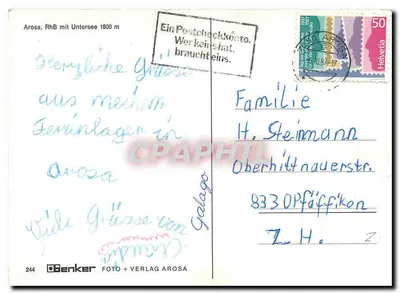 Arosa, RhB mit Untersee 1800 m
Ein Postcheckkonto.
Wer keins hat,
braucht eins.
50
Helvetia
AROSA
Herzliche Grüsse
aus meinem
Ferienlager in
Arosa
Viele Grüsse von
Claudia
Galago
Familie
H. Steimann
Oberhittnauerstr.
8330 Pfäffikon
Z. H.
244 Denker FOTO + VERLAG AROSA
www.delcampe.net